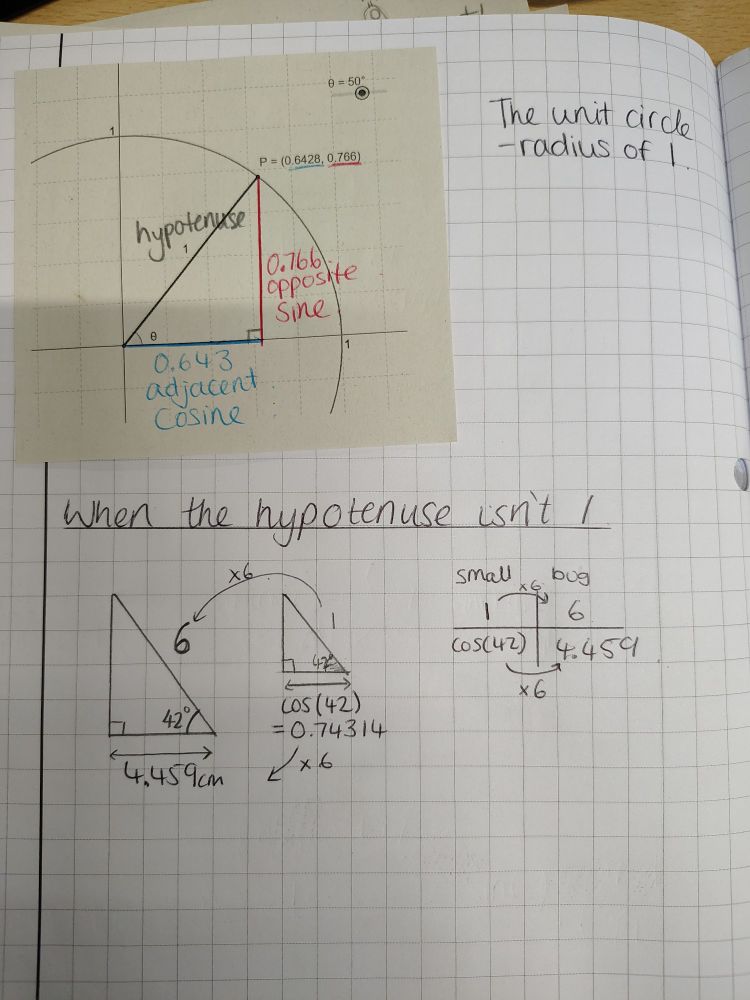 θ = 50°
1
P = (0.6428, 0.766)
hypotenuse
1
0.766
opposite
Sine
θ
1
0.643
adjacent
Cosine
The unit circle
-radius of 1.
When the hypotenuse isn't 1
×6
6
42°
4.459cm
1
42°
cos(42)
= 0.74314
×6
small ×6 bug
1 6
cos(42) 4.459
×6